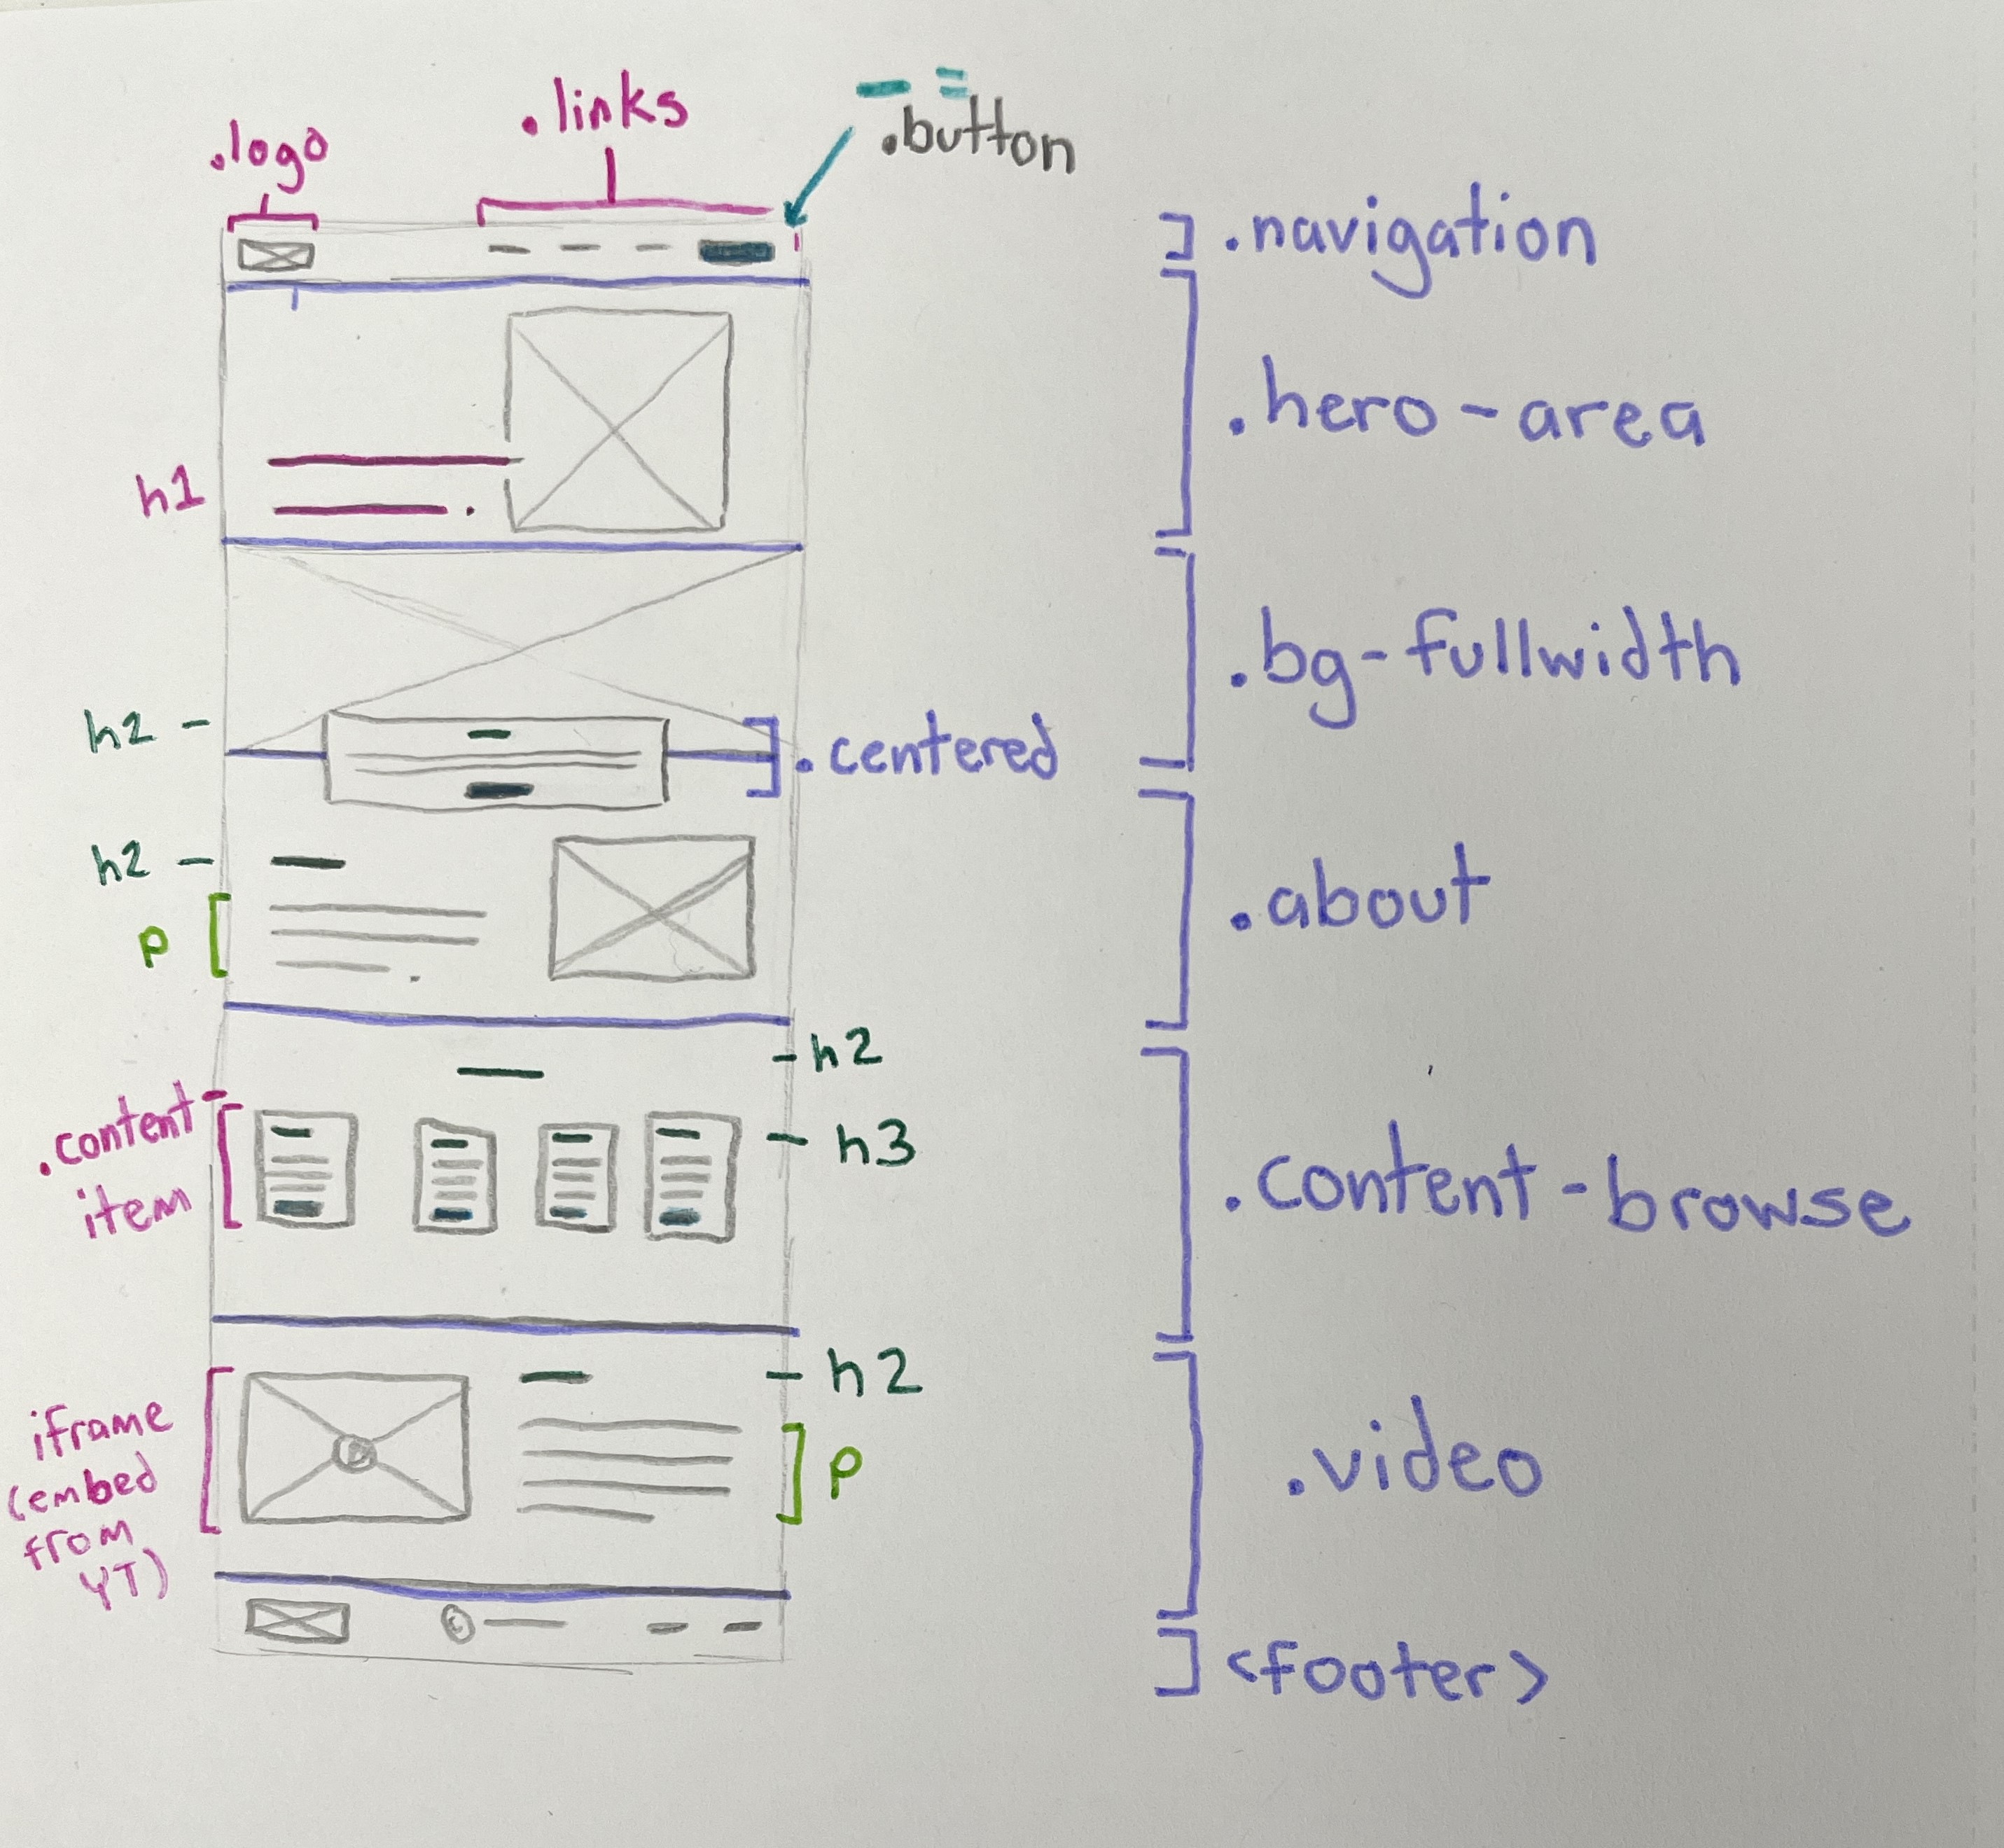 .logo
.links
.button
.navigation
.hero-area
h1
.bg-fullwidth
h2
.centered
h2
p
.about
h2
.content-
item
h3
.content-browse
h2
iframe
(embed
from
YT)
p
.video
©
<footer>